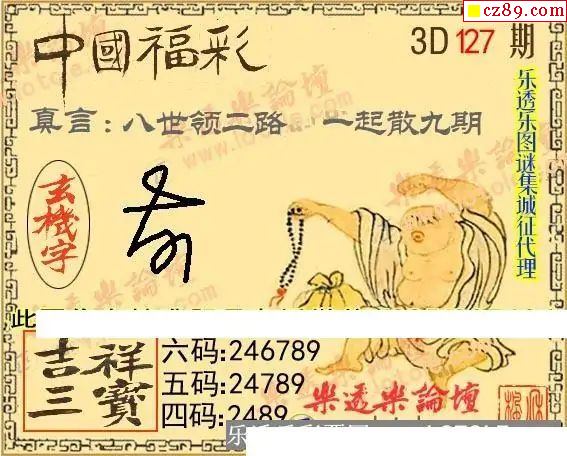 cz89.com
中國福彩
3D 127 期
真言：八世领二路 一起散九期
乐透乐图谜集城征代理
玄機字
吉祥
三寳
六码:246789
五码:24789
四码:2489
樂透樂論壇